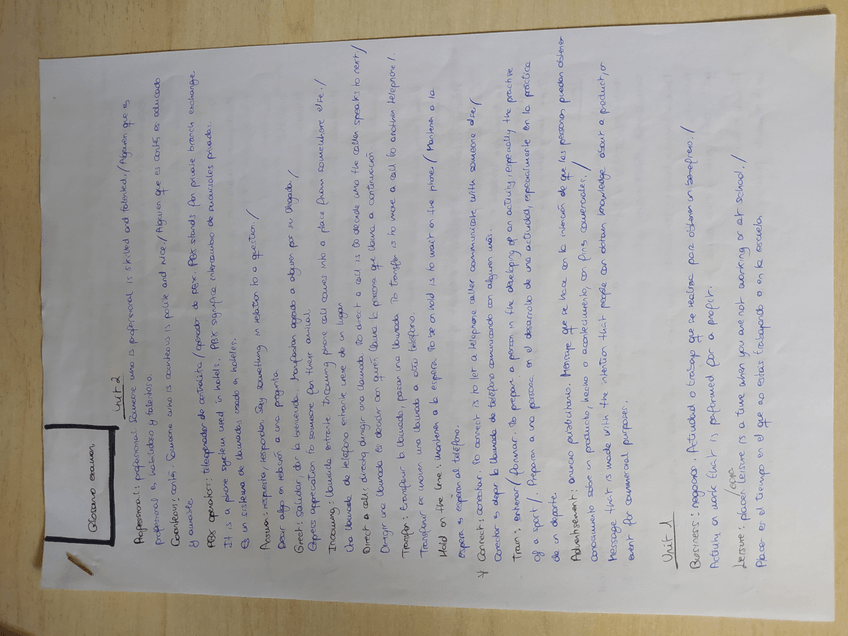 Glosario examen
Unit 2
Professional: profesional. Someone who is professional is skilled and talented. / Alguien que es
profesional es habilidoso y talentoso.
Courteous: cortés. Someone who is courteous is polite and nice. / Alguien que es cortés, es educado
y amable.
PBX operator: teleoperador de centralita / operador de PBX. PBX stands for private branch exchange.
It is a phone system used in hotels. PBX significa intercambio de sucursales privado.
Es un sistema de llamadas, usado en hoteles.
Answer: respuesta, responder. Say something in relation to a question. /
Decir algo en relación a una pregunta.
Greet: saludar, dar la bienvenida. Manifestar agrado a alguien por su llegada.
Express appreciation to someone for their arrival.
Incoming: llamada entrante. Incoming phone call comes into a place from somewhere else. /
Una llamada de teléfono entrante viene de un lugar
Direct a call: dirigir una llamada. To direct a call is to decide who the caller speaks to next /
Dirigir una llamada es decidir con quién habla la persona que llama a continuación.
Transfer: transferir la llamada, pasar una llamada. To transfer is to move a call to another telephone /.
Transferir es mover una llamada a otro teléfono.
Hold on the line: mantener a la espera. To be on hold is to wait on the phone / Mantener a la
espera es esperar al teléfono.
Y Connect: conectar. To connect is to let a telephone caller communicate with someone else. /
Conectar es dejar la llamada de teléfono comunicando con alguien más.
Train: entrenar / formar. To prepare a person in the developing of an activity, especially the practice
of a sport /. Preparar a una persona en el desarrollo de una actividad, especialmente en la práctica
de un deporte.
Advertisement: anuncio publicitario. Mensaje que se hace con la intención de que las personas puedan obtener
conocimiento sobre un producto, hecho o acontecimiento, con fines comerciales. /
Message that is made with the intention that people can obtain knowledge about a product, or
event for commercial purposes.
Unit 1
Business: negocios. Actividad o trabajo que se realiza para obtener un beneficio. /
Activity or work that is performed for a profit.
Leisure: placer / ocio. Leisure is a time when you are not working or at school. /
Placer es el tiempo en el que no estás trabajando o en la escuela.